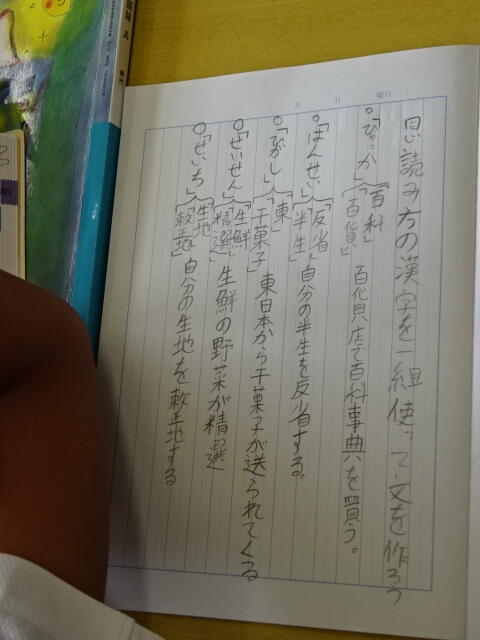 同読み方の漢字を一組使って文を作ろう
。「ひゃっか」「百科」「百貨」 百貨店で百科事典を買う。
。「はんせい」「反省」「半生」 自分の半生を反省する。
。「ひがし」「東」「干菓子」 東日本から干菓子が送られてくる
。「せいせん」「生鮮」「精選」 生鮮の野菜が精選
。「せいち」「生地」「整地」 自分の生地を整地する
月 日 曜日